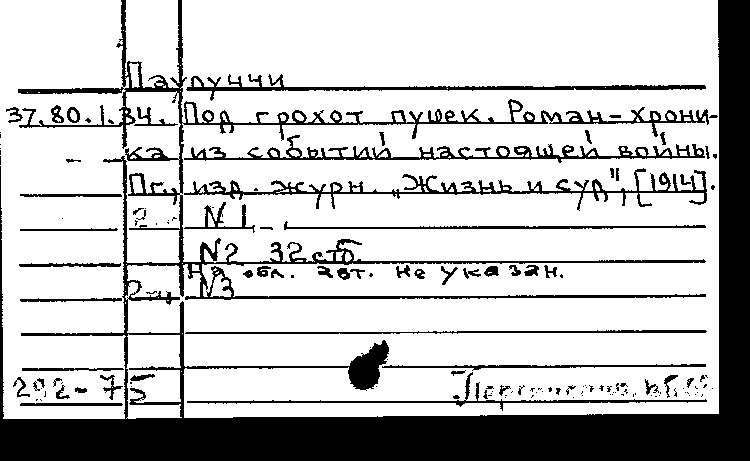 Паулуччи
37.80.1.34. Под грохот пушек. Роман-хрони-
ка из событий настоящей войны.
Пг., изд. журн. „Жизнь и суд", [1914].
N1
N2 32 стб.
На обл. авт. не указан.
N3
292-75